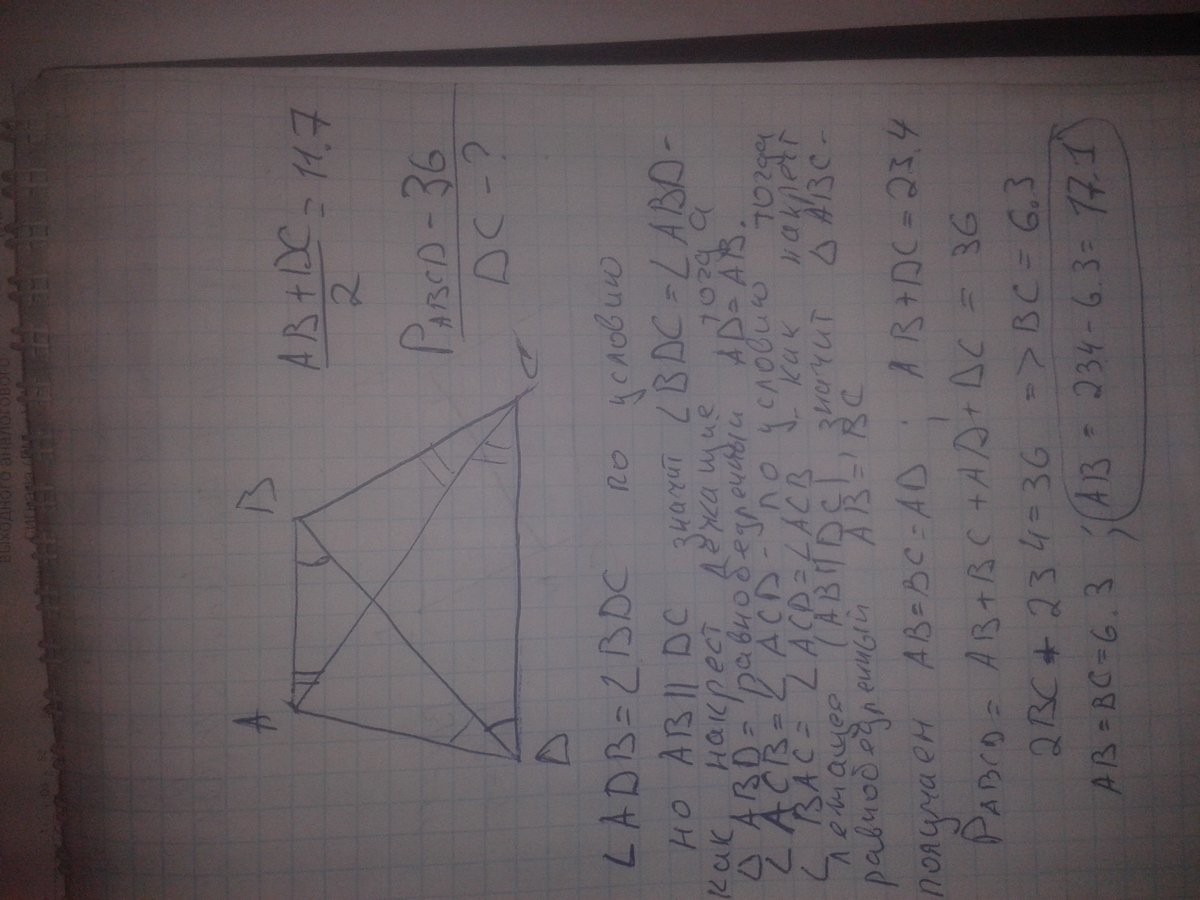 A
B
C
D
AB+DC
2
= 11.7
PABCD - 36
DC - ?
∠ADB = ∠BDC по условию
но AB || DC значит ∠BDC = ∠ABD -
как накрест лежащие тогда
△ ABD = равнобедренный AD = AB.
∠ACB = ∠ACD - по условию тогда
∠BAC = ∠ACD = ∠ACB как накрест
лежащее (AB || DC) значит △ ABC -
равнобедренный AB = BC
получаем AB = BC = AD AB + DC = 23.4
PABCD = AB + BC + AD + DC = 36
2BC + 23 4 = 36 => BC = 6.3
AB = BC = 6.3 ; AB = 23.4 - 6.3 = 17.1
выходного аналогового